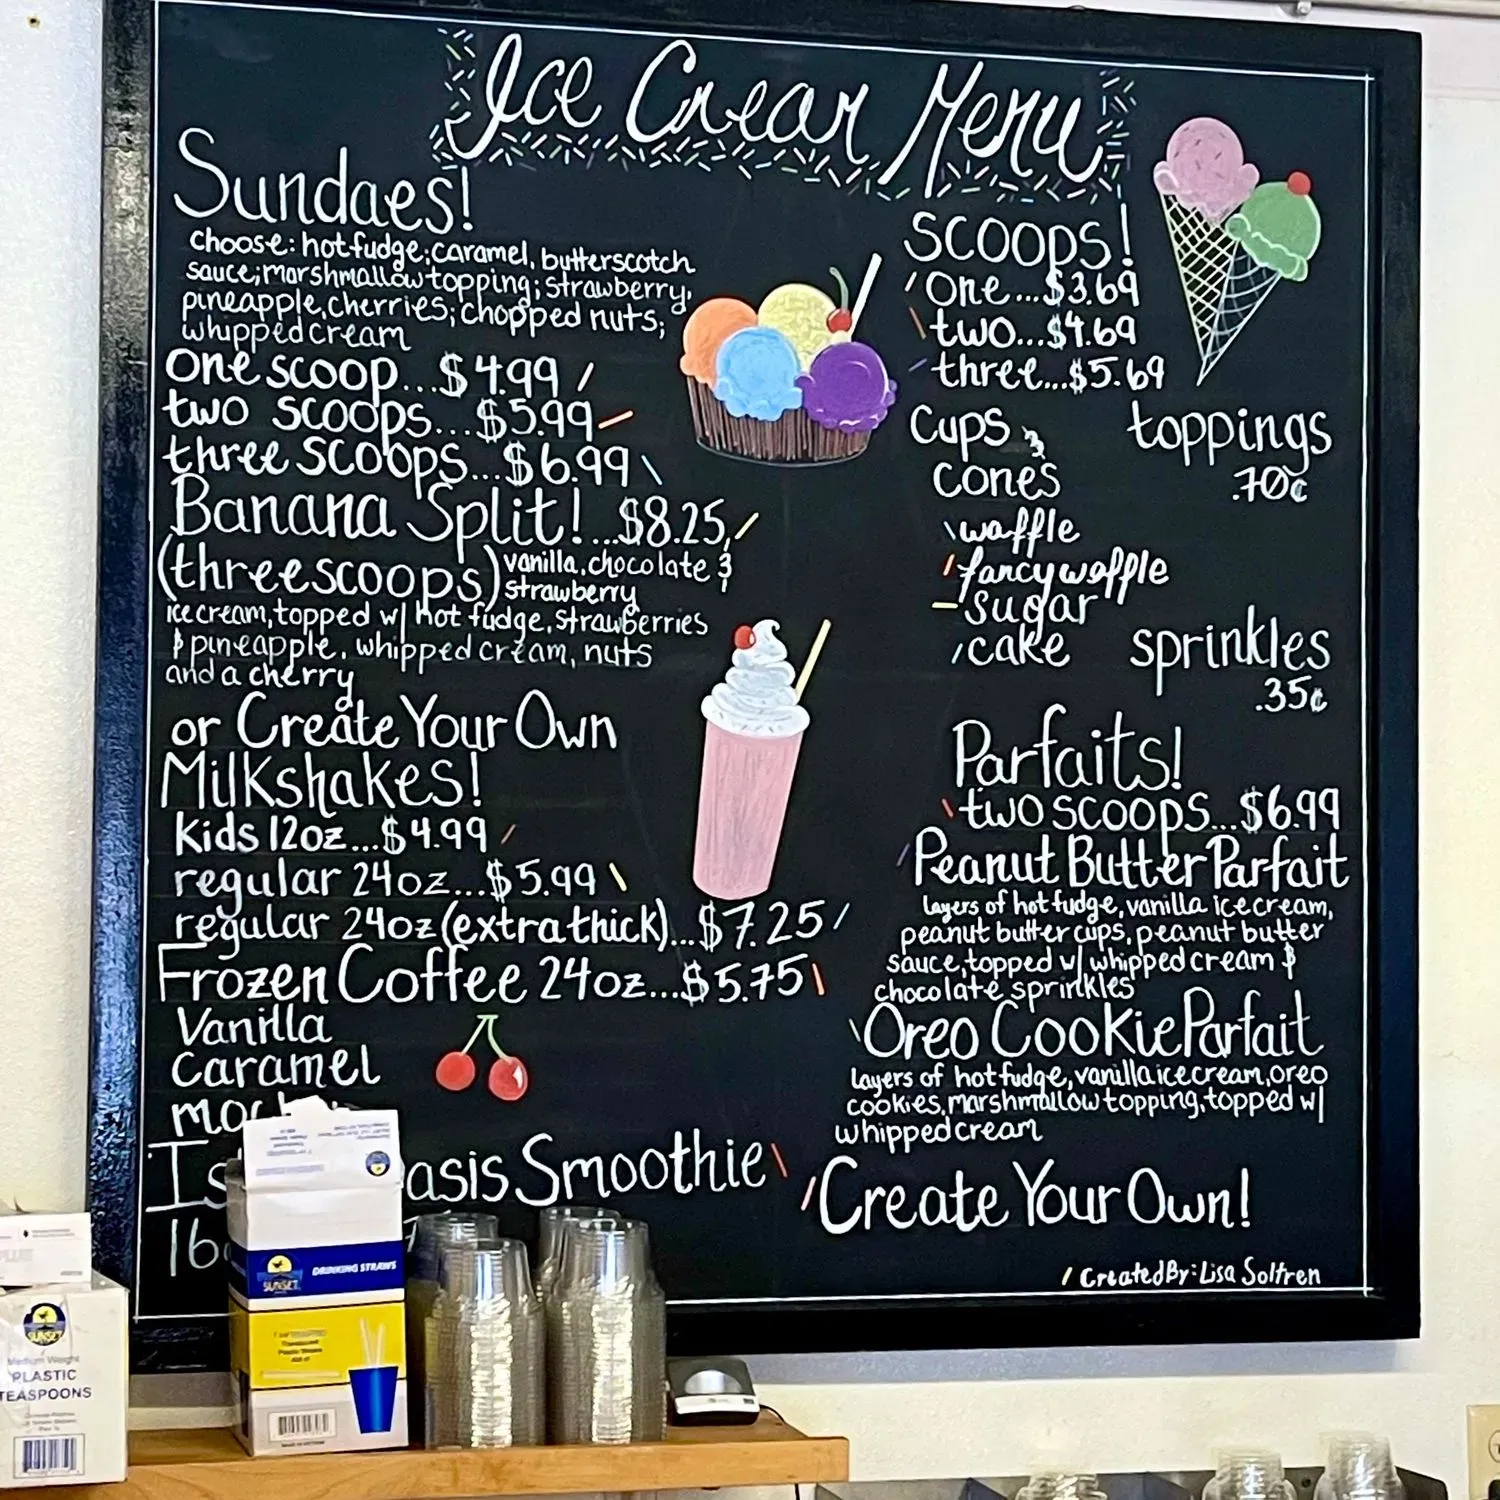 Ice Cream Menu
Sundaes!
choose: hot fudge; caramel, butterscotch
sauce; marshmallow topping; strawberry,
pineapple, cherries; chopped nuts;
whipped cream
one scoop...$4.99
two scoops...$5.99
three scoops...$6.99
Banana Split!...$8.25
(three scoops) vanilla, chocolate &
strawberry
ice cream, topped w/ hot fudge, strawberries
& pineapple, whipped cream, nuts
and a cherry
or Create Your Own
Milkshakes!
kids 12oz...$4.99
regular 24oz...$5.99
regular 24oz (extra thick)...$7.25
Frozen Coffee 24oz...$5.75
Vanilla
Caramel
Smoothie
scoops!
one...$3.69
two...$4.69
three...$5.69
Cups &
Cones
waffle
fancy waffle
sugar
cake
toppings
.70¢
sprinkles
.35¢
Parfaits!
two scoops...$6.99
Peanut Butter Parfait
layers of hot fudge, vanilla ice cream,
peanut butter cups, peanut butter
sauce, topped w/ whipped cream &
chocolate sprinkles
Oreo Cookie Parfait
layers of hot fudge, vanilla ice cream, oreo
cookies, marshmallow topping, topped w/
whipped cream
Create Your Own!
Created By: Lisa Soltren
DRINKING STRAWS
SUNSET
SUNSET
Medium Weight
PLASTIC
TEASPOONS